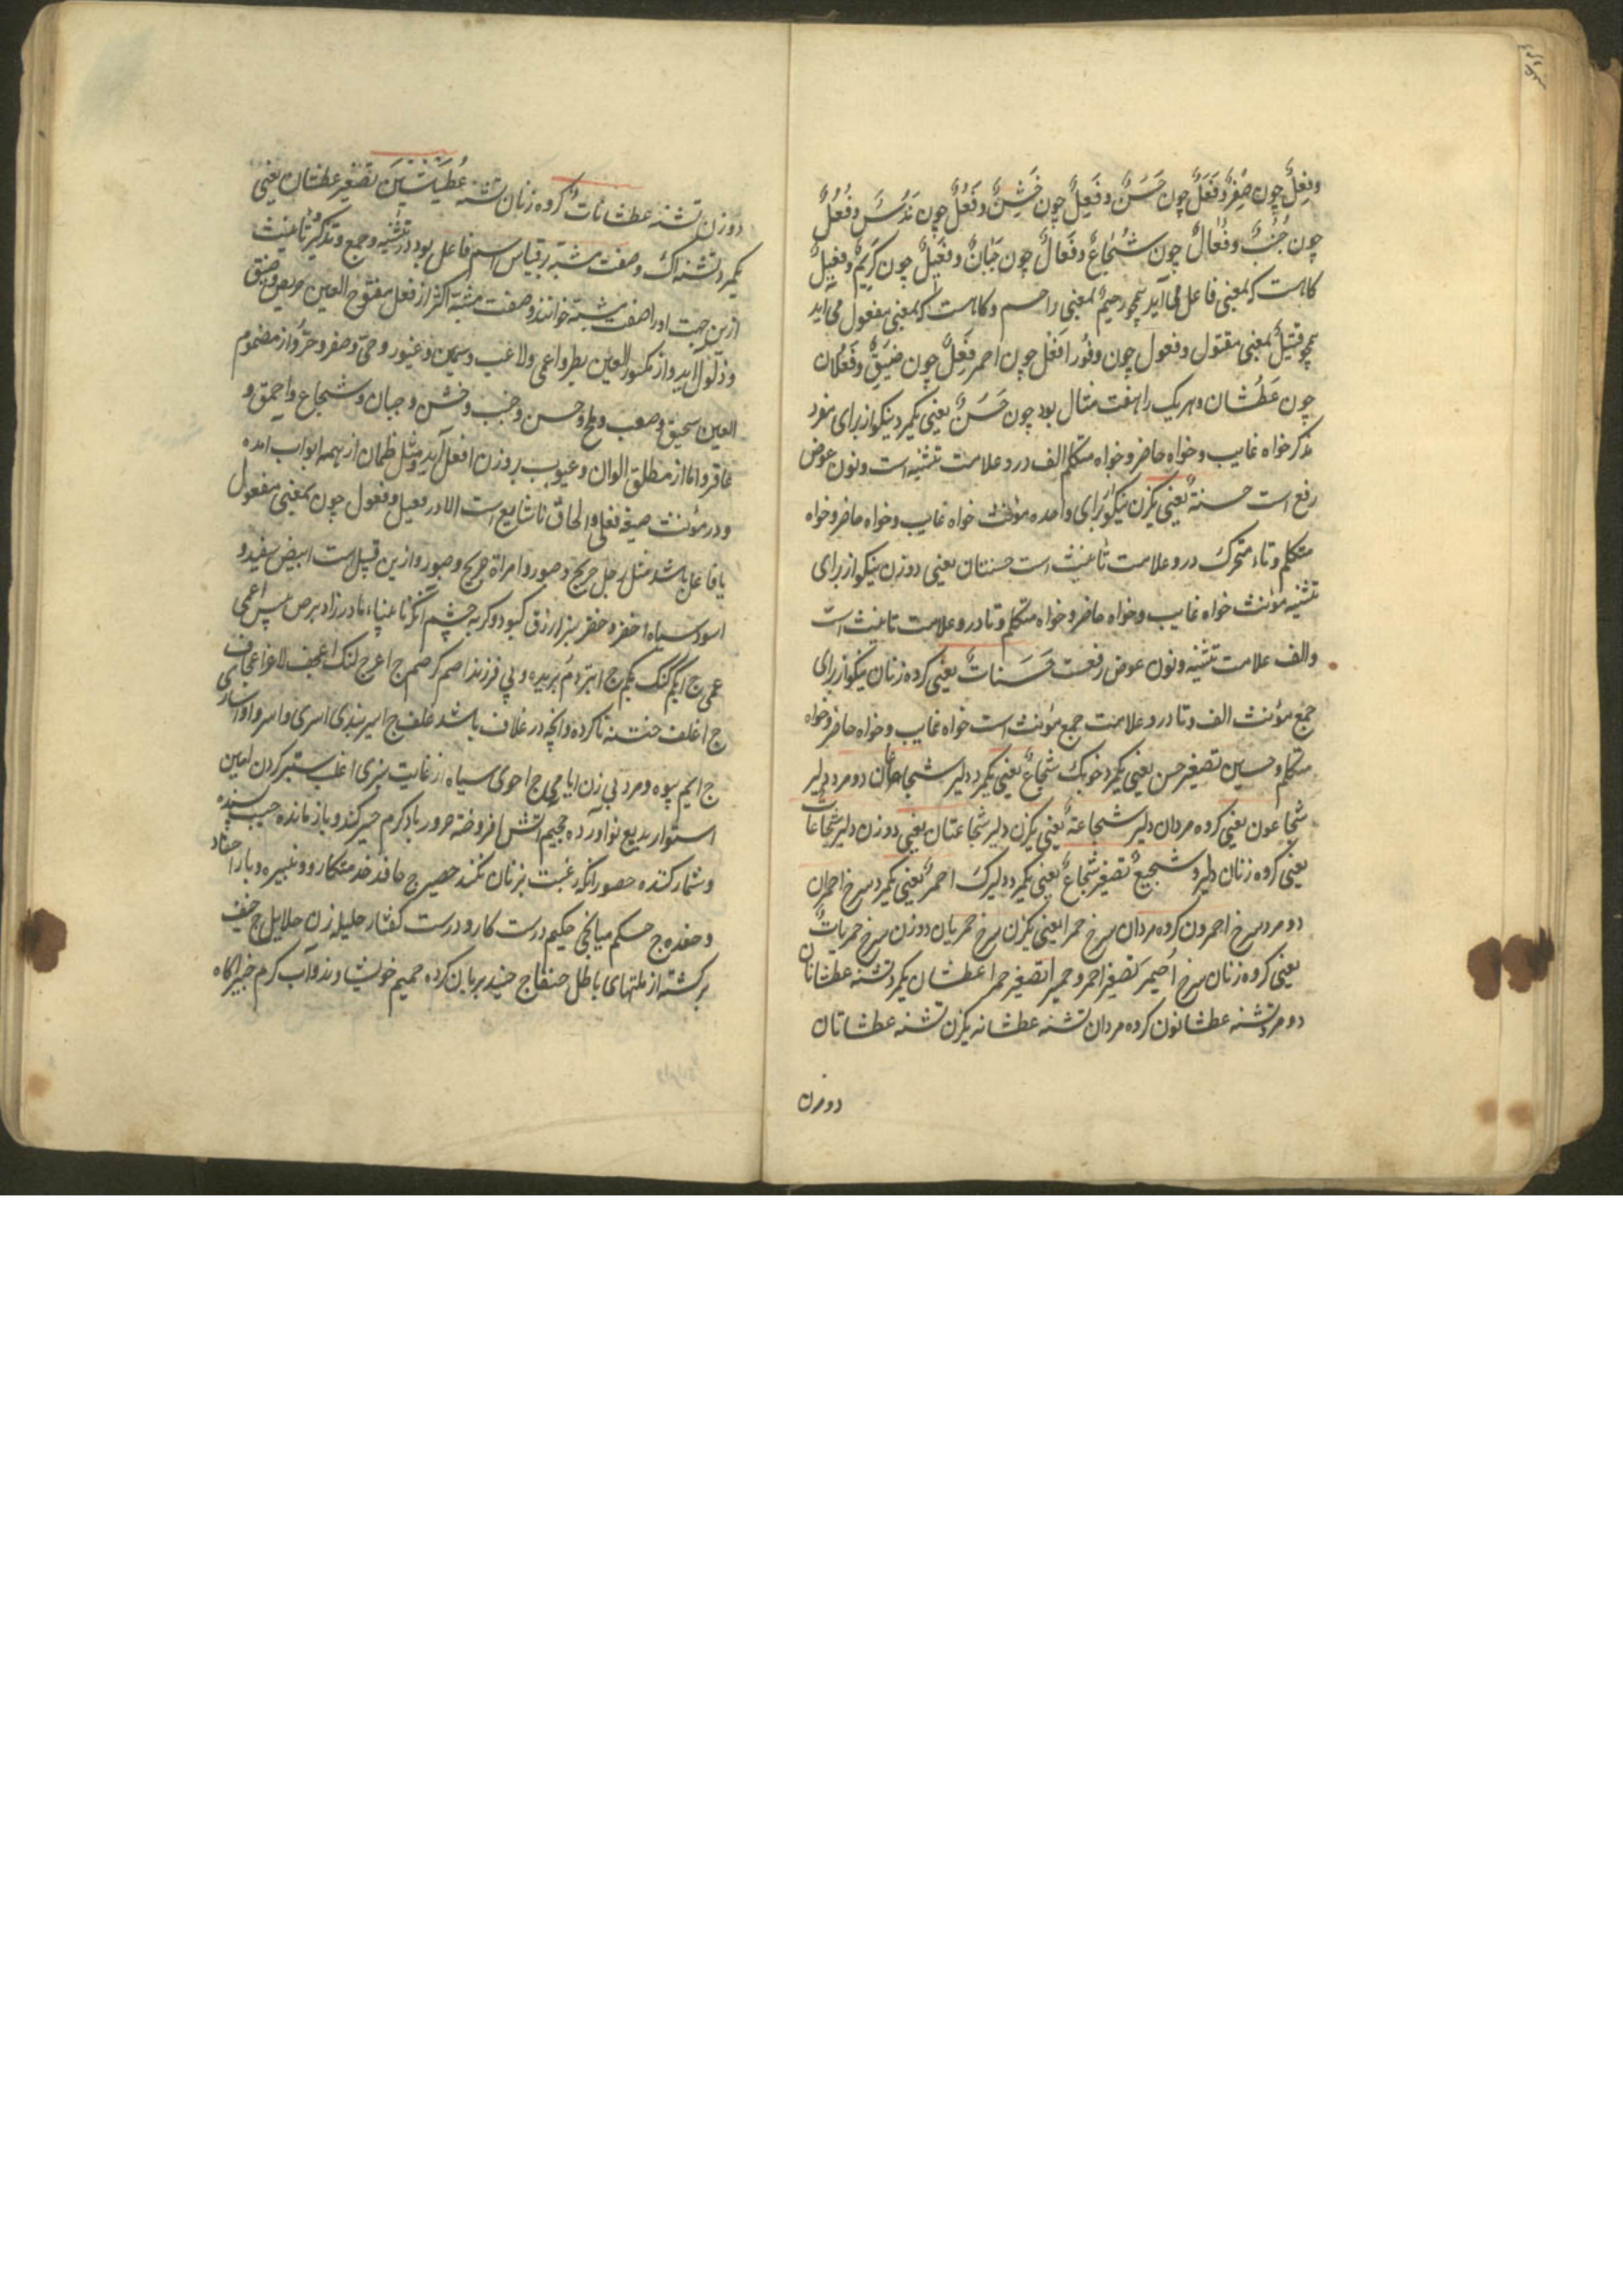 وفِعلٌ چون صِفرٌ وفَعَلٌ چون حَسَنٌ وفَعِلٌ چون خَشِنٌ وفَعُلٌ چون نَدُسٌ وفُعُلٌ
چون جُنُبٌ وفُعالٌ چون شُجاعٌ وفَعالٌ چون جَبانٌ وفَعِیلٌ چون کَرِیمٌ وفعیلٌ
کاهست که بمعنی فاعل می آید همچو رحیمٌ بمعنی راحم وکاهست که بمعنی مفعول می اید
همچو قتیلٌ بمعنی مقتول وفعول چون وقُور افعَل چون احمر فَیعِلٌ چون ضَیِّقٌ وفَعْلان
چون عَطْشان وهریک را هفت مثال بود چون حَسَنٌ یعنی یکمرد نیکو از برای مفرد
مذکر خواه غایب وخواه حاضر وخواه متکلم الف درو علامت تثنیه است ونون عوض
رفع است حسنةٌ یعنی یکزن نیکو برای واحده مؤنث خواه غایب وخواه حاضر وخواه
متکلم وتاء متحرک درو علامت تأنیث است حسنتان یعنی دوزن نیکو از برای
تثنیه مؤنث خواه غایب وخواه حاضر وخواه متکلم وتا درو علامت تانیث است
والف علامت تثنیه ونون عوض رفعست حَسَناتٌ یعنی کروه زنان نیکو از برای
جمع مؤنث الف وتا درو علامت جمع مؤنث است خواه غایب وخواه حاضر وخواه
متکلم وحسین تصغیر حسن یعنی یکمرد خوبک شجاعٌ یعنی یکمرد دلیر شجاعان دومرد دلیر
شجاعون یعنی کروه مردان دلیر شجاعةٌ یعنی یکزن دلیر شجاعتان یعنی دوزن دلیر شجاعات
یعنی کروه زنان دلیر وشجیعٌ تصغیر شجاعٌ یعنی یکمرد دلیرک احمرٌ یعنی یکمرد سرخ احمران
دومرد سرخ احمرون کروه مردان سرخ حمرا یعنی یکزن سرخ حمریان دوزن سرخ حمریاتٌ
یعنی کروه زنان سرخ اُحیمر تصغیر احمر وحمیرا تصغیر حمرا عطشان یکمرد تشنه عطشانان
دومرد تشنه عطشانون کروه مردان تشنه عطشانه یکزن تشنه عطشانتان
دوزن
دوزن تشنه عطشاناتٌ کروه زنان تشنه عُطَیشین تصغیر عطشان یعنی
یکمرد تشنه اک وصفت مشبه بر قیاس اسم فاعل بود در تثنیه وجمع وتذکیر وتأنیث
ازین جهت اورا صفت مشبه خوانند وصفت مشبه اکثر از فعل مفتوح العین حریص وضیق
وذلول آید واز مکسور العین بطر واعمی ولاعب وسمین وغیور وحیّ وصفر وحرّ واز مضموم
العین سحیق وصعب وملح وحسن وجنب وخشن وجبان وشجاع واحمق و
عاقر واما از مطلق الوان وعیوب بروزن افعل آید ومثل ظمان از همه ابواب امده
ودر مؤنث صیغه فعلی والحاق تا شایع است الا در فعیل وفعول چون بمعنی مفعول
یا فاعل باشد مثل رجل جریح وصبور وامراة جریح وصبور وازین قبیل است ابیض سفید و
اسود سیاه اخضر وخضر سبز ازرق کبود وکربه چشم اکمه نابینای مادرزاد برص پیس اعمی
عمی ج ابکم کنک بکم ج ابتر دم بریده وبی فرزند اصم کر صمم ج اعرج لنک اعجف لاغر عجاف
ج اغلف ختنه ناکرده وانچه در غلاف باشد غلف ج اسیر بندی اسری واسرا واساری
ج ایم بیوه ومرد بی زن ایامی ج احوی سیاه از غایت سبزی اغلب ستبر کردن امین
استوار بدیع نو آورده جحیم اتش افروخته حرور باد کرم حسیر کند وباز مانده حسیب بسنده
وشمار کننده حصور انکه رغبت بزنان نکند حصیر ج حافد خدمتکار ونبیره ودیار احفاد
وحفده ج حکم میانجی حکیم درست کار ودرست کفتار حلیله زن حلایل ج حنیف
برکشته از ملتهای باطل حنفا ج حنیذ بریان کرده حمیم خویشاوند وآب کرم خبیر اکاه